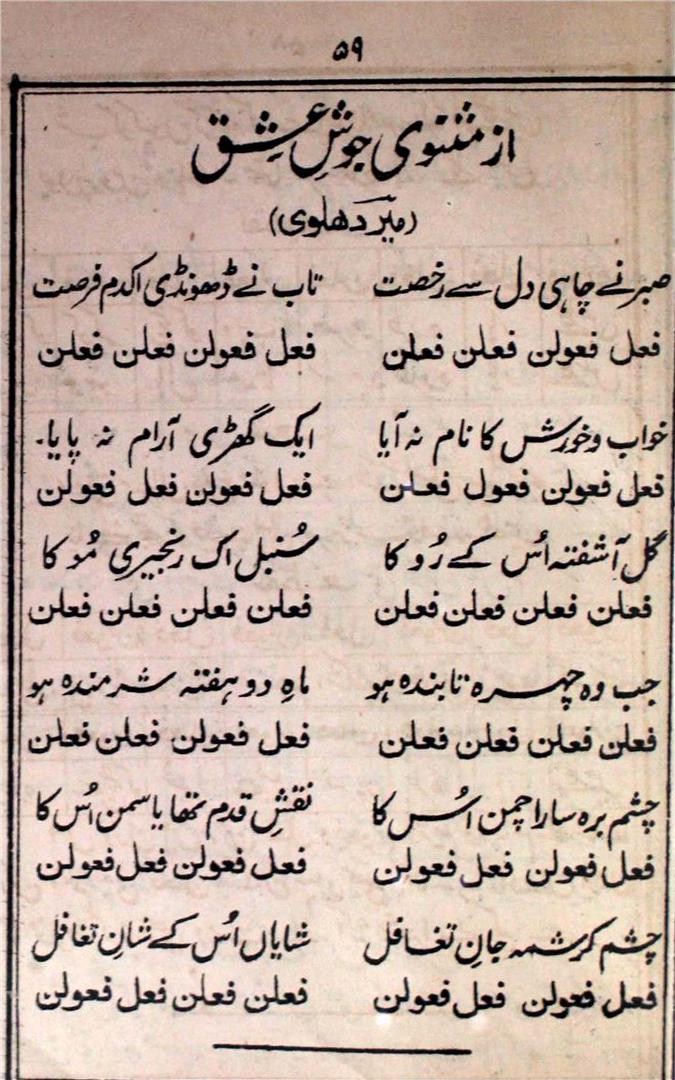 ۵۹
از مثنوی جوشِ عشق
(میر دھلوی)
صبر نے چاہی دل سے رخصت تاب نے ڈھونڈی اکدم فرصت
فعل فعولن فعلن فعلن فعل فعولن فعلن فعلن
خواب و خورش کا نام نہ آیا ایک گھڑی آرام نہ پایا۔
فعل فعولن فعول فعلن فعل فعولن فعل فعولن
گل آشفتہ اُس کے رُو کا سُنبل اک زنجیری مُو کا
فعلن فعلن فعلن فعلن فعلن فعلن فعلن فعلن
جب وہ چہرہ تابندہ ہو ماہِ دو ہفتہ شرمندہ ہو
فعلن فعلن فعلن فعلن فعل فعولن فعلن فعلن
چشم برہ سارا چمن اُس کا نقشِ قدم تھا یاسمن اُس کا
فعل فعولن فعل فعولن فعل فعولن فعل فعولن
چشم کرشمہ جانِ تغافل شایاں اُس کے شانِ تغافل
فعل فعولن فعل فعولن فعلن فعلن فعل فعولن